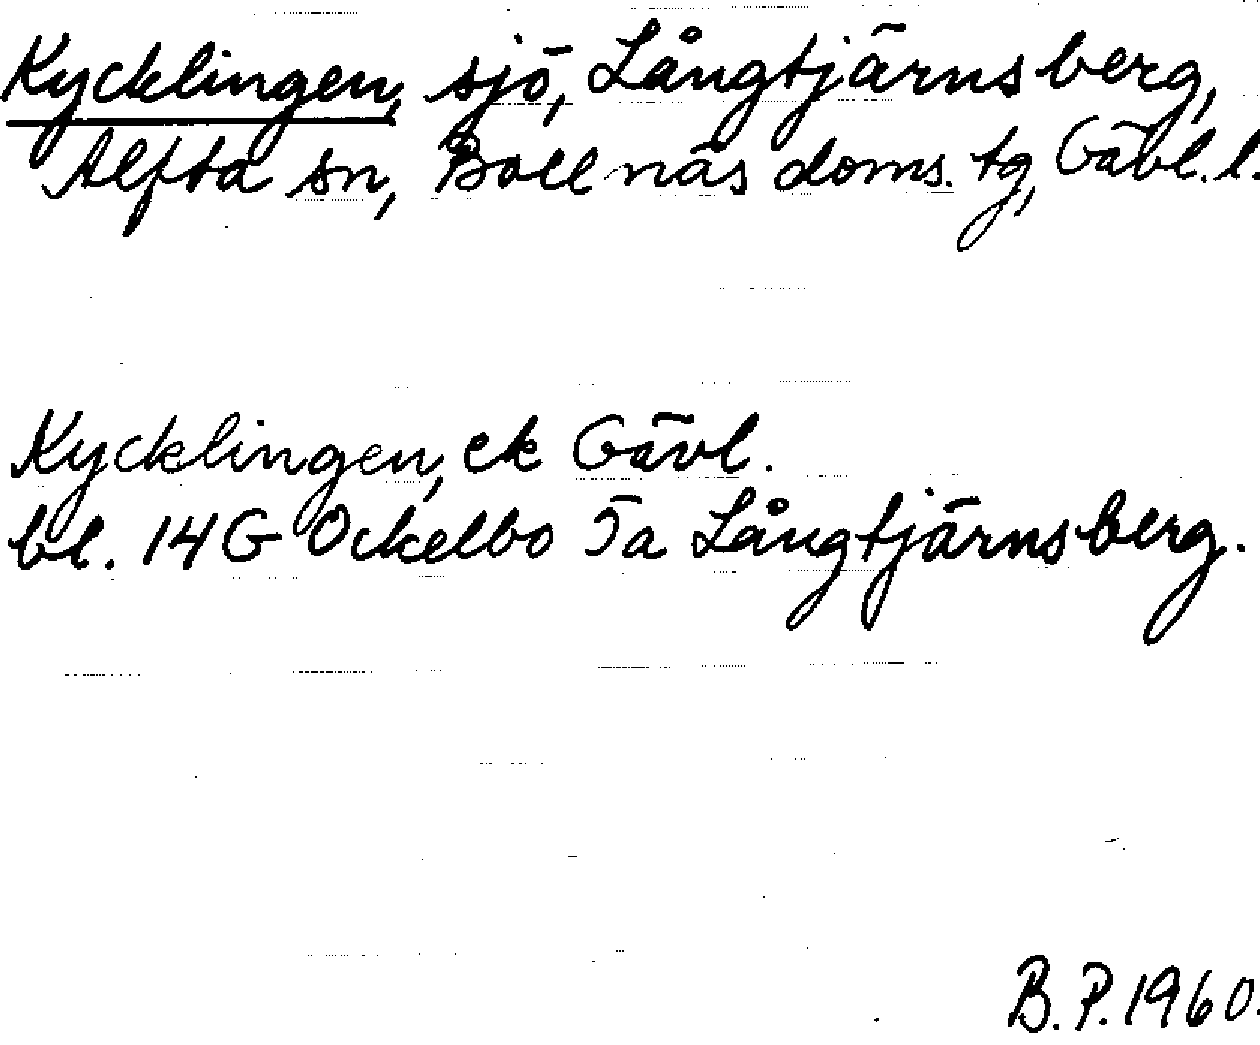 Kycklingen, sjö, Långtjärnsberg,
Alfta sn, Bollnäs doms. tg, Gävl. l.
Kycklingen, ek Gävl.
bl. 14 G Ockelbo 5a Långtjärnsberg.
B. P. 1960.